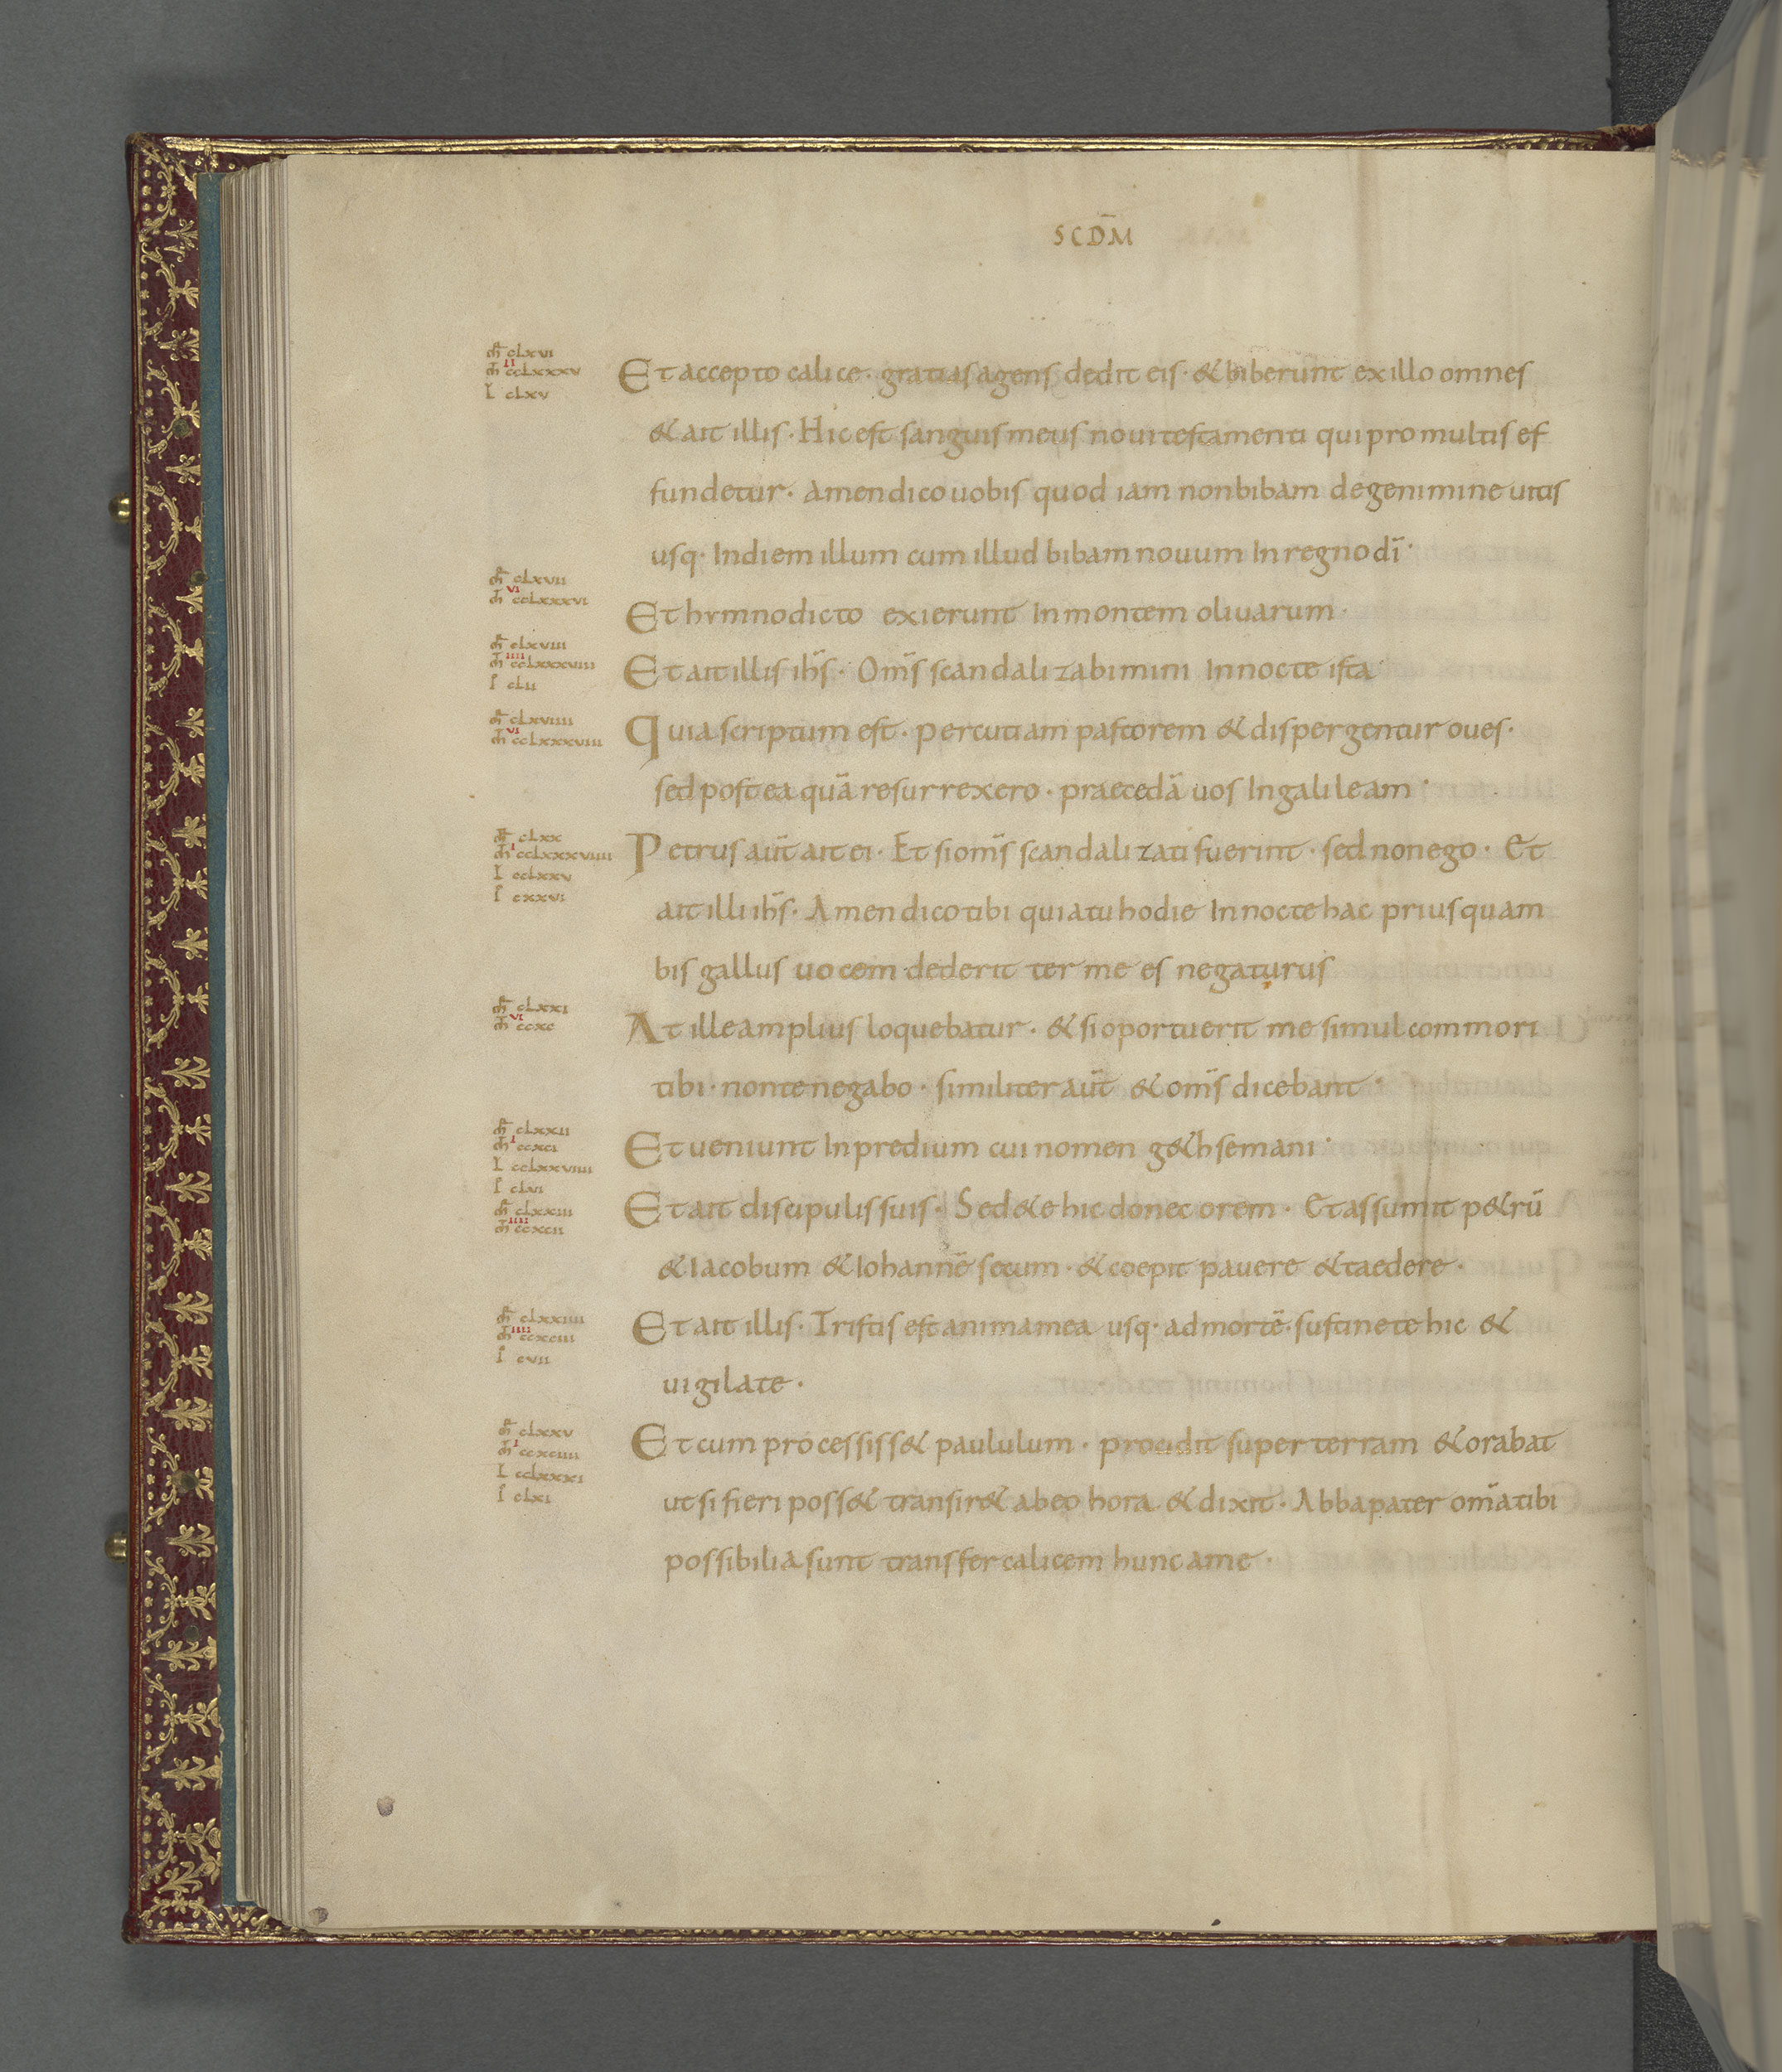 SCDM̄
mr̄ clxvi
II
mt̄ cclxxxv
l clxv
Et accepto calice · gratias agens dedit eis · & biberunt ex illo omnes
& ait illis · Hic est sanguis meus noui testamenti qui pro multis ef
fundetur · amen dico uobis quod iam non bibam de genimine uitis
usq · In diem illum cum illud bibam nouum In regno dī ·
mr̄ clxvii
VI
mt̄ cclxxxvi
Et hymno dicto exierunt In montem oliuarum ·
mr̄ clxviii
IIII
mt̄ cclxxxviii
Et ait illis ihs̄ · Om̄s scandalizabimini In nocte ista
mr̄ clxviiii
VI
mt̄ cclxxxviii
Quia scriptum est · percutiam pastorem & dispergentur oues ·
sed postea quā resurrexero · praecedā uos In galileam ·
mr̄ clxx
I
mt̄ cclxxxviiii
Petrus aūt ait ei · Et si om̄s scandalizati fuerint · sed non ego · Et
ait illi ihs̄ · Amen dico tibi quia tu hodie In nocte hac priusquam
bis gallus uocem dederit ter me es negaturus
mr̄ clxxi
VI
mt̄ ccxc
At ille amplius loquebatur · & si oportuerit me simul commori
tibi · non te negabo · similiter aūt & om̄s dicebant ·
mr̄ clxxii
I
mt̄ ccxci
l cclxxviiii
I clvi
Et ueniunt In predium cui nomen g&hsemani ·
mr̄ clxxiii
IIII
mt̄ ccxcii
Et ait discipulis suis · Sed&e hic donec orem · Et assumit p&rū
& Iacobum & Iohannē secum · & coepit pauere & taedere ·
mr̄ clxxiiii
IIII
mt̄ ccxciii
I cvii
Et ait illis · Tristis est anima mea usq · ad mortē · sustinete hic &
uigilate ·
mr̄ clxxv
I
mt̄ ccxciiii
l cclxxxi
I clxi
Et cum processiss& paululum · procidit super terram & orabat
ut si fieri poss& transir& ab eo hora & dixit · Abba pater om̄a tibi
possibilia sunt transfer calicem hunc a me ·